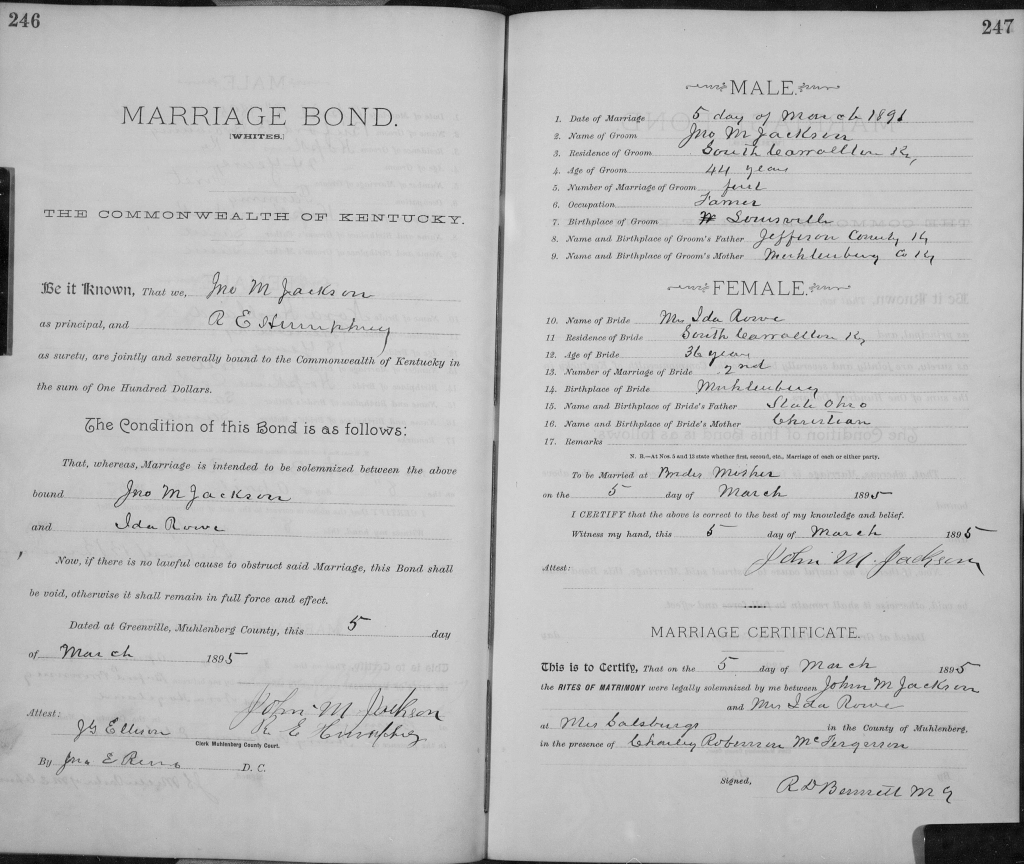 246
MARRIAGE BOND.
[WHITES.]
THE COMMONWEALTH OF KENTUCKY.
Be it Known, That we, Jno M Jackson
as principal, and R E Humphrey
as surety, are jointly and severally bound to the Commonwealth of Kentucky in
the sum of One Hundred Dollars.
The Condition of this Bond is as follows:
That, whereas, Marriage is intended to be solemnized between the above
bound Jno M Jackson
and Ida Rowe
Now, if there is no lawful cause to obstruct said Marriage, this Bond shall
be void, otherwise it shall remain in full force and effect.
Dated at Greenville, Muhlenberg County, this 5 day
of March 1895
John M Jackson
Attest: R E Humphrey
JG Ellison
Clerk Muhlenberg County Court.
By Jno E Reno D. C.
247
MALE.
1. Date of Marriage 5 day of March 1895
2. Name of Groom Jno M Jackson
3. Residence of Groom South Carrollton Ky,
4. Age of Groom 44 years
5. Number of Marriage of Groom first
6. Occupation Famer
7. Birthplace of Groom Louisville
8. Name and Birthplace of Groom's Father Jefferson County Ky
9. Name and Birthplace of Groom's Mother Muhlenburg Co Ky
FEMALE.
10. Name of Bride Mrs Ida Rowe
11 Residence of Bride South Carrollton Ky
12. Age of Bride 36 years
13. Number of Marriage of Bride 2nd
14. Birthplace of Bride Muhlenburg
15. Name and Birthplace of Bride's Father State Ohio
16. Name and Birthplace of Bride's Mother Christian
17. Remarks
N. B.—At Nos. 5 and 13 state whether first, second, etc., Marriage of each or either party.
To be Married at Brides Mother
on the 5 day of March 1895
I CERTIFY that the above is correct to the best of my knowledge and belief.
Witness my hand, this 5 day of March 1895
John M. Jackson
Attest:
MARRIAGE CERTIFICATE.
This is to Certify, That on the 5 day of March 1895
the RITES OF MATRIMONY were legally solemnized by me between John M Jackson
and Mrs Ida Rowe
at Mrs Salsburgs in the County of Muhlenberg,
in the presence of Charley Roberson McFergerson
Signed, R D Bennett M G